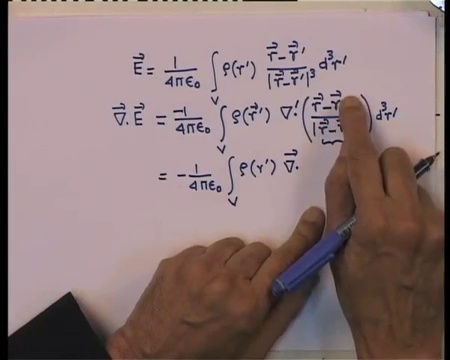 E⃗ = 1/4πε₀ ∫_V ρ(r') (r⃗ - r⃗')/|r⃗ - r⃗'|³ d³r'
∇⃗ · E⃗ = -1/4πε₀ ∫_V ρ(r⃗') ∇' · (r⃗ - r⃗ / |r⃗ - r ) d³r'
= - 1/4πε₀ ∫_V ρ(r') ∇⃗ ·